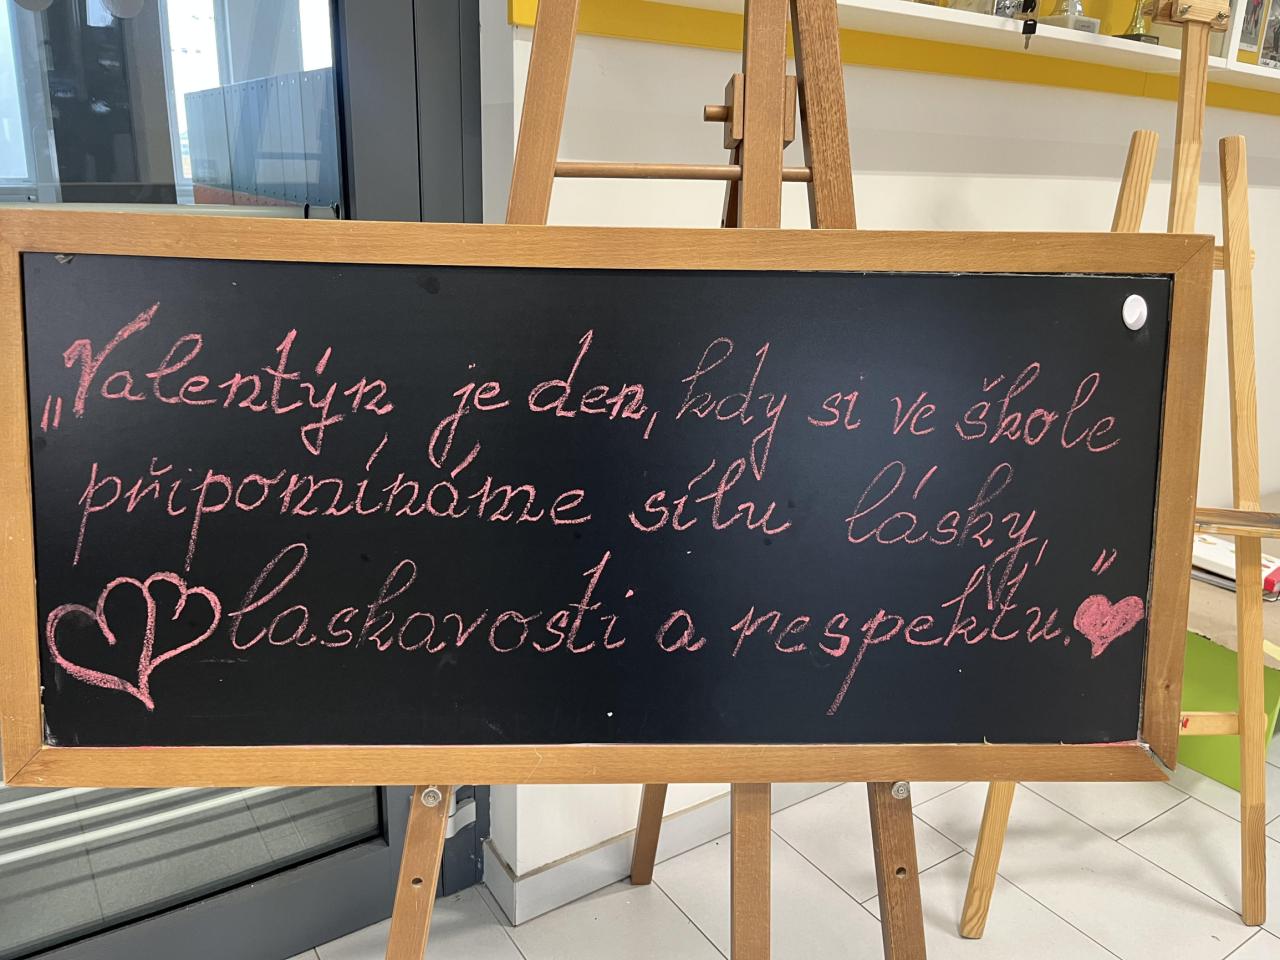 „Valentýn je den, kdy si ve škole
připomínáme sílu lásky,
laskavosti a respektu.“